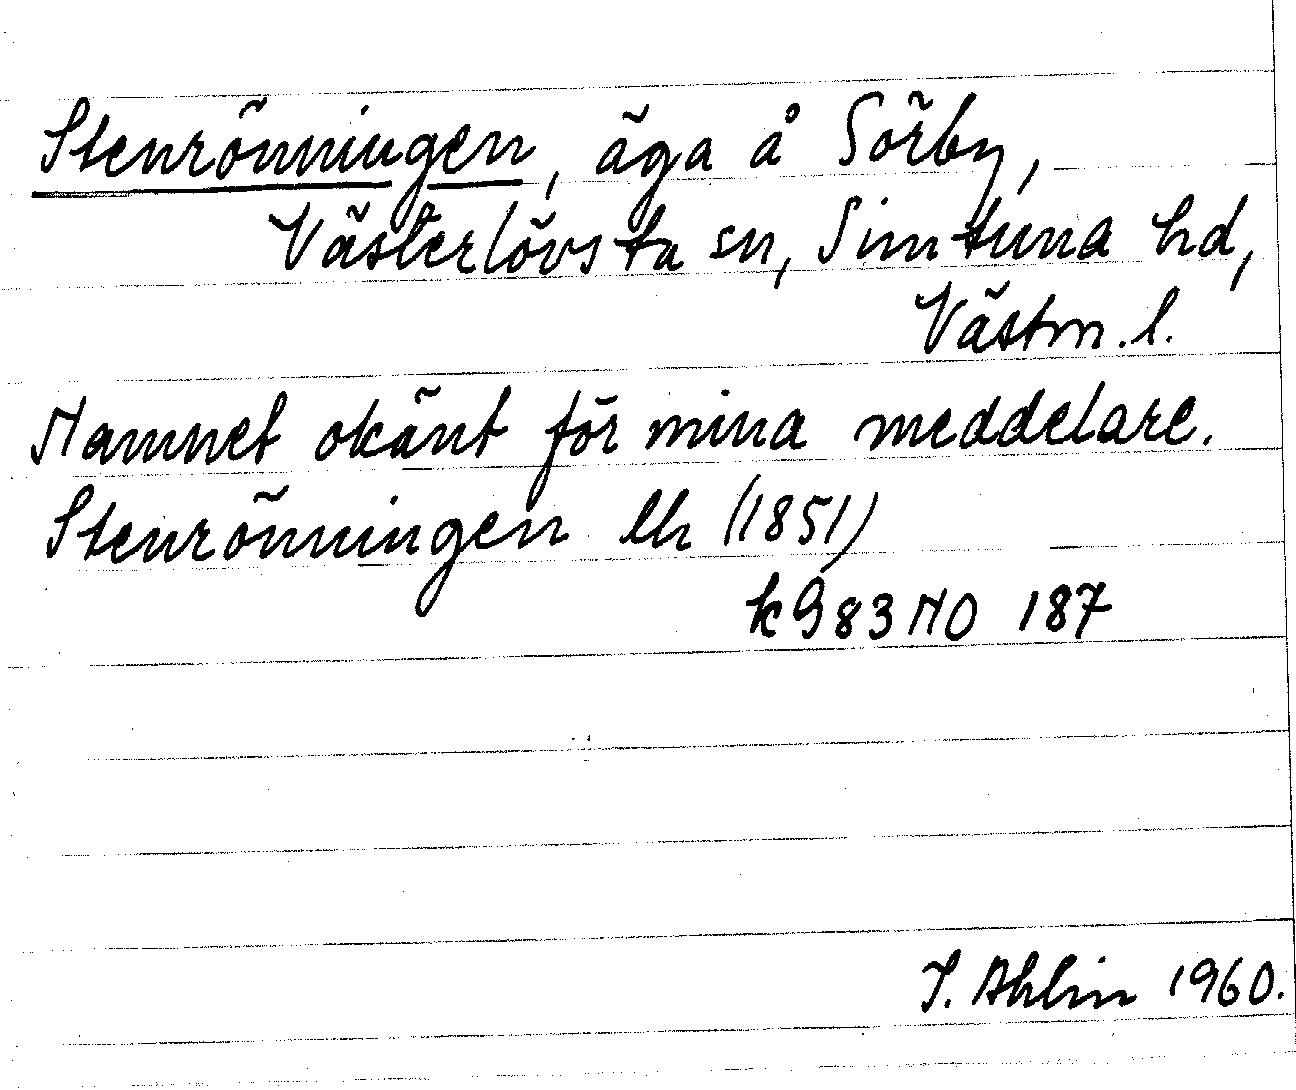 Stenrönningen, äga å Sörby,
Västerlövsta sn, Simtuna hd,
Västm. l.
Namnet okänt för mina meddelare.
Stenrönningen lh (1851)
k983 NO 187
I. Ahlin 1960.